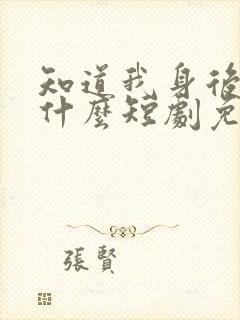 知道我身後
什麼短劇免
張賢